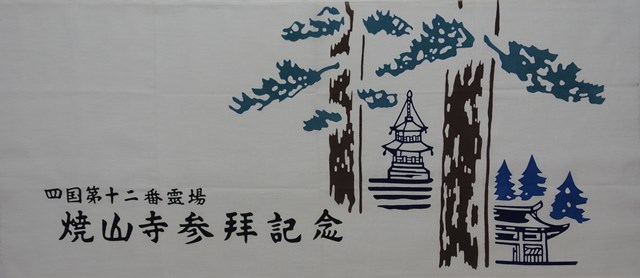 四国第十二番霊場
焼山寺参拝記念